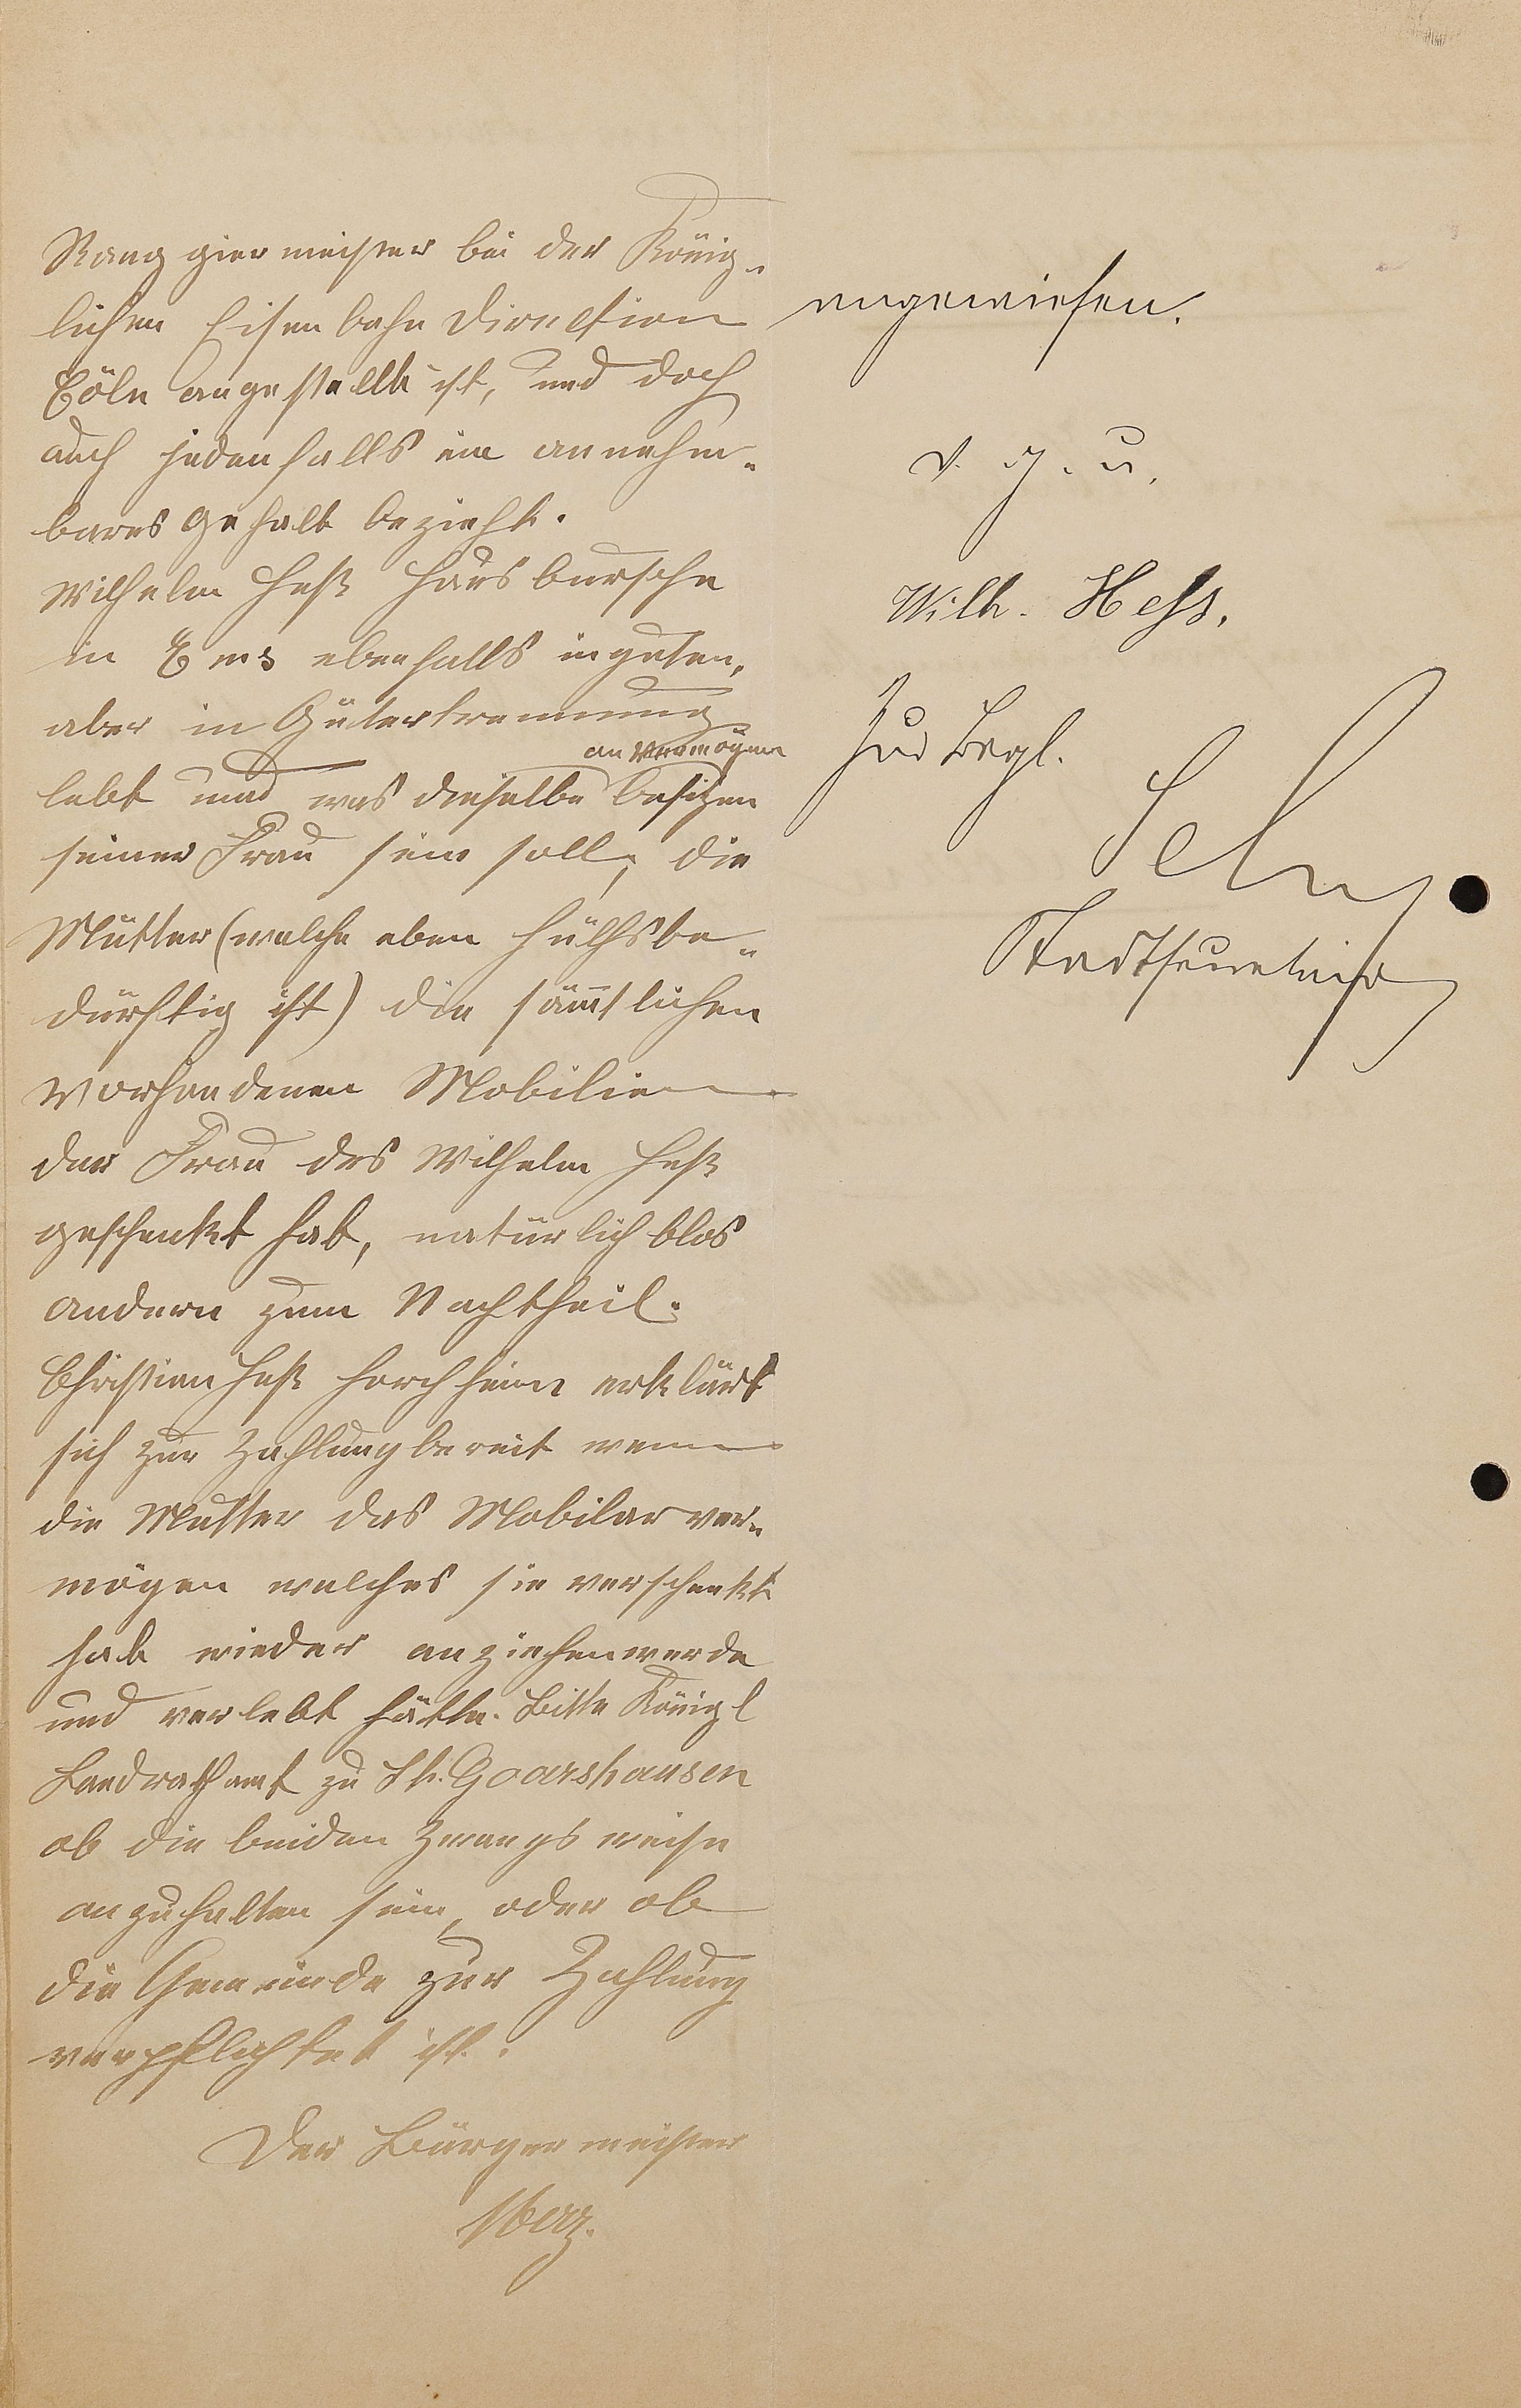 Rang giermeister bei der König-
lichen Eisenbahn Direction
Cöln angestellt ist, und doch
auch jedenfalls ein annehm-
bares Gehalt bezieht.
Wilhelm Heß Hausbursche
in Ems ebenfalls in guten,
aber in Gütertrennung
an Vermögen
lebt und was dieselbe besitzen
seiner Frau sein soll, die
Mutter (welche eben hülfsbe-
dürftig ist) die sämmtlichen
vorhandenen Mobilien
der Frau des Wilhelm Heß
geschenkt hat, natürlich blos
andern zum Nachtheil.
Christian Heß Horchheim erklärt
sich zur Zahlung bereit wenn
die Mutter das Mobilar ver-
mögen welches sie verschenkt
hab wieder anziehen werde
und verlebt hätte. Bitte Königl
Landrathamt zu St. Goarshausen
ob die beiden Zwangs weise
anzuhalten sein, oder ob
die Gemeinde zur Zahlung
verpflichtet ist.
Der Bürgermeister
angewiesen.
v. g. u.
Wilh. Hess.
Zur Begl.
Stadtsecretair